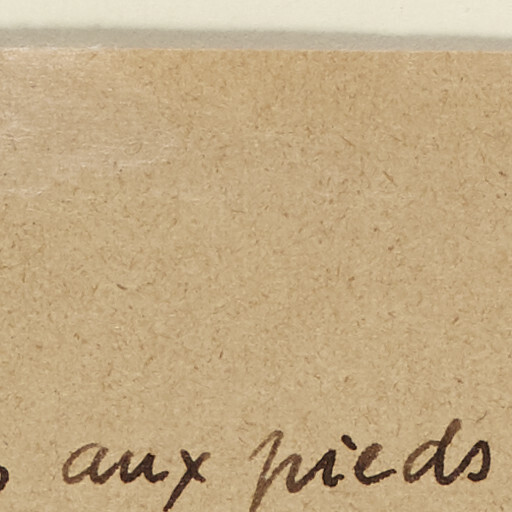 aux pieds